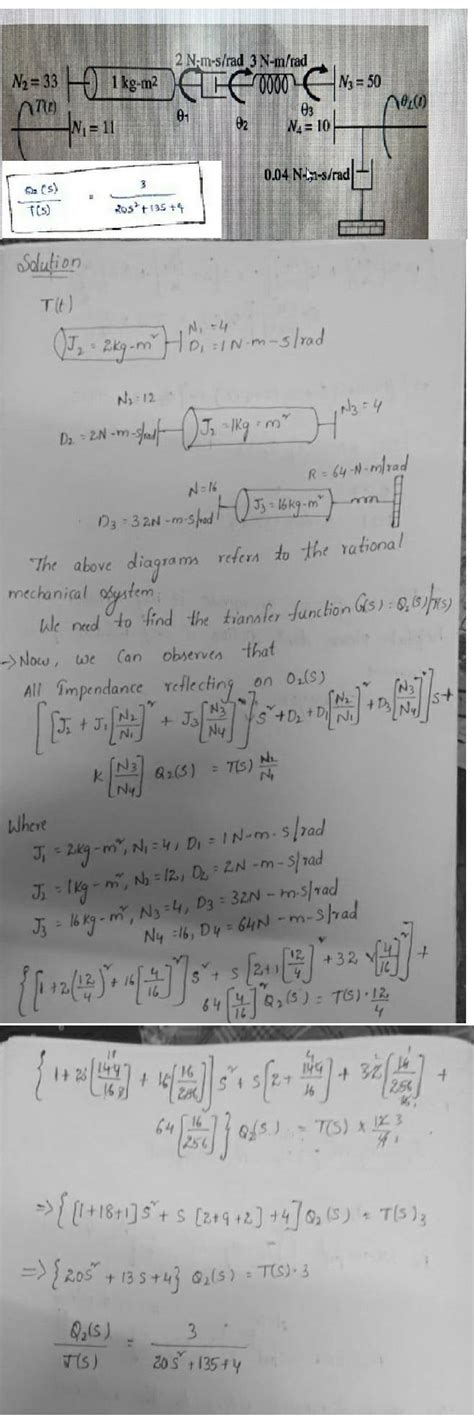 2 N-m-s/rad 3 N-m/rad
N₂ = 33
1 kg-m²
N₃ = 50
T(t)
θ₁
θ₂
θ₃
θ_L(t)
N₁ = 11
N₄ = 10
0.04 N-m-s/rad
θ₂(s) / T(s) = 3 / 20s²+13s+4
Solution
T(t)
J₂ = 2kg-m²
N₁ = 4
D₁ = 1 N-m-s/rad
N₂=12
D₂ = 2N-m-s/rad
J₂ = 1kg = m²
N₃ = 4
R = 64-N-m/rad
N=16
D₃ = 32N-m-s/rad
J₃ = 16kg-m²
The above diagrams refers to the rational
mechanical system;
We need to find the transfer function G(s) = Q₂(s)/T(s)
→Now, we can observes that
All Impendance reflecting on O₂(s)
[[J₂ + J₁[N₂/N₁]² + J₃[N₃/N₄]²]s² + D₂ + D₁[N₂/N₁]² + D₃[N₃/N₄]²]s +
K[N₃/N₄] Q₂(s) = T(s) N₂/N₁
Where
J₁ = 2kg-m², N₁ = 4, D₁ = 1N-m-s/rad
J₂ = 1kg-m², N₂ = 12, D₂ = 2N-m-s/rad
J₃ = 16kg-m², N₃ = 4, D₃ = 32N-m-s/rad
N₄ = 16, D₄ = 64N-m-s/rad
{[1+2(12/4)² + 16[4/16]²]s² + s[2+1[12/4]² + 32[4/16]²] +
64[4/16]² Q₂(s) = T(s)·12/4
{1+2s[144/16] + 16[16/256]]s² + s[2+144/16] + 32[16/256] +
64[16/256]} Q₂(s) = T(s) × 12/4 3
=> {[1+18+1]s² + s[2+9+2]+4]Q₂(s) = T(s)3
=> {20s² + 13s+4} Q₂(s) = T(s)·3
Q₂(s) / T(s) = 3 / 20s²+13s+4